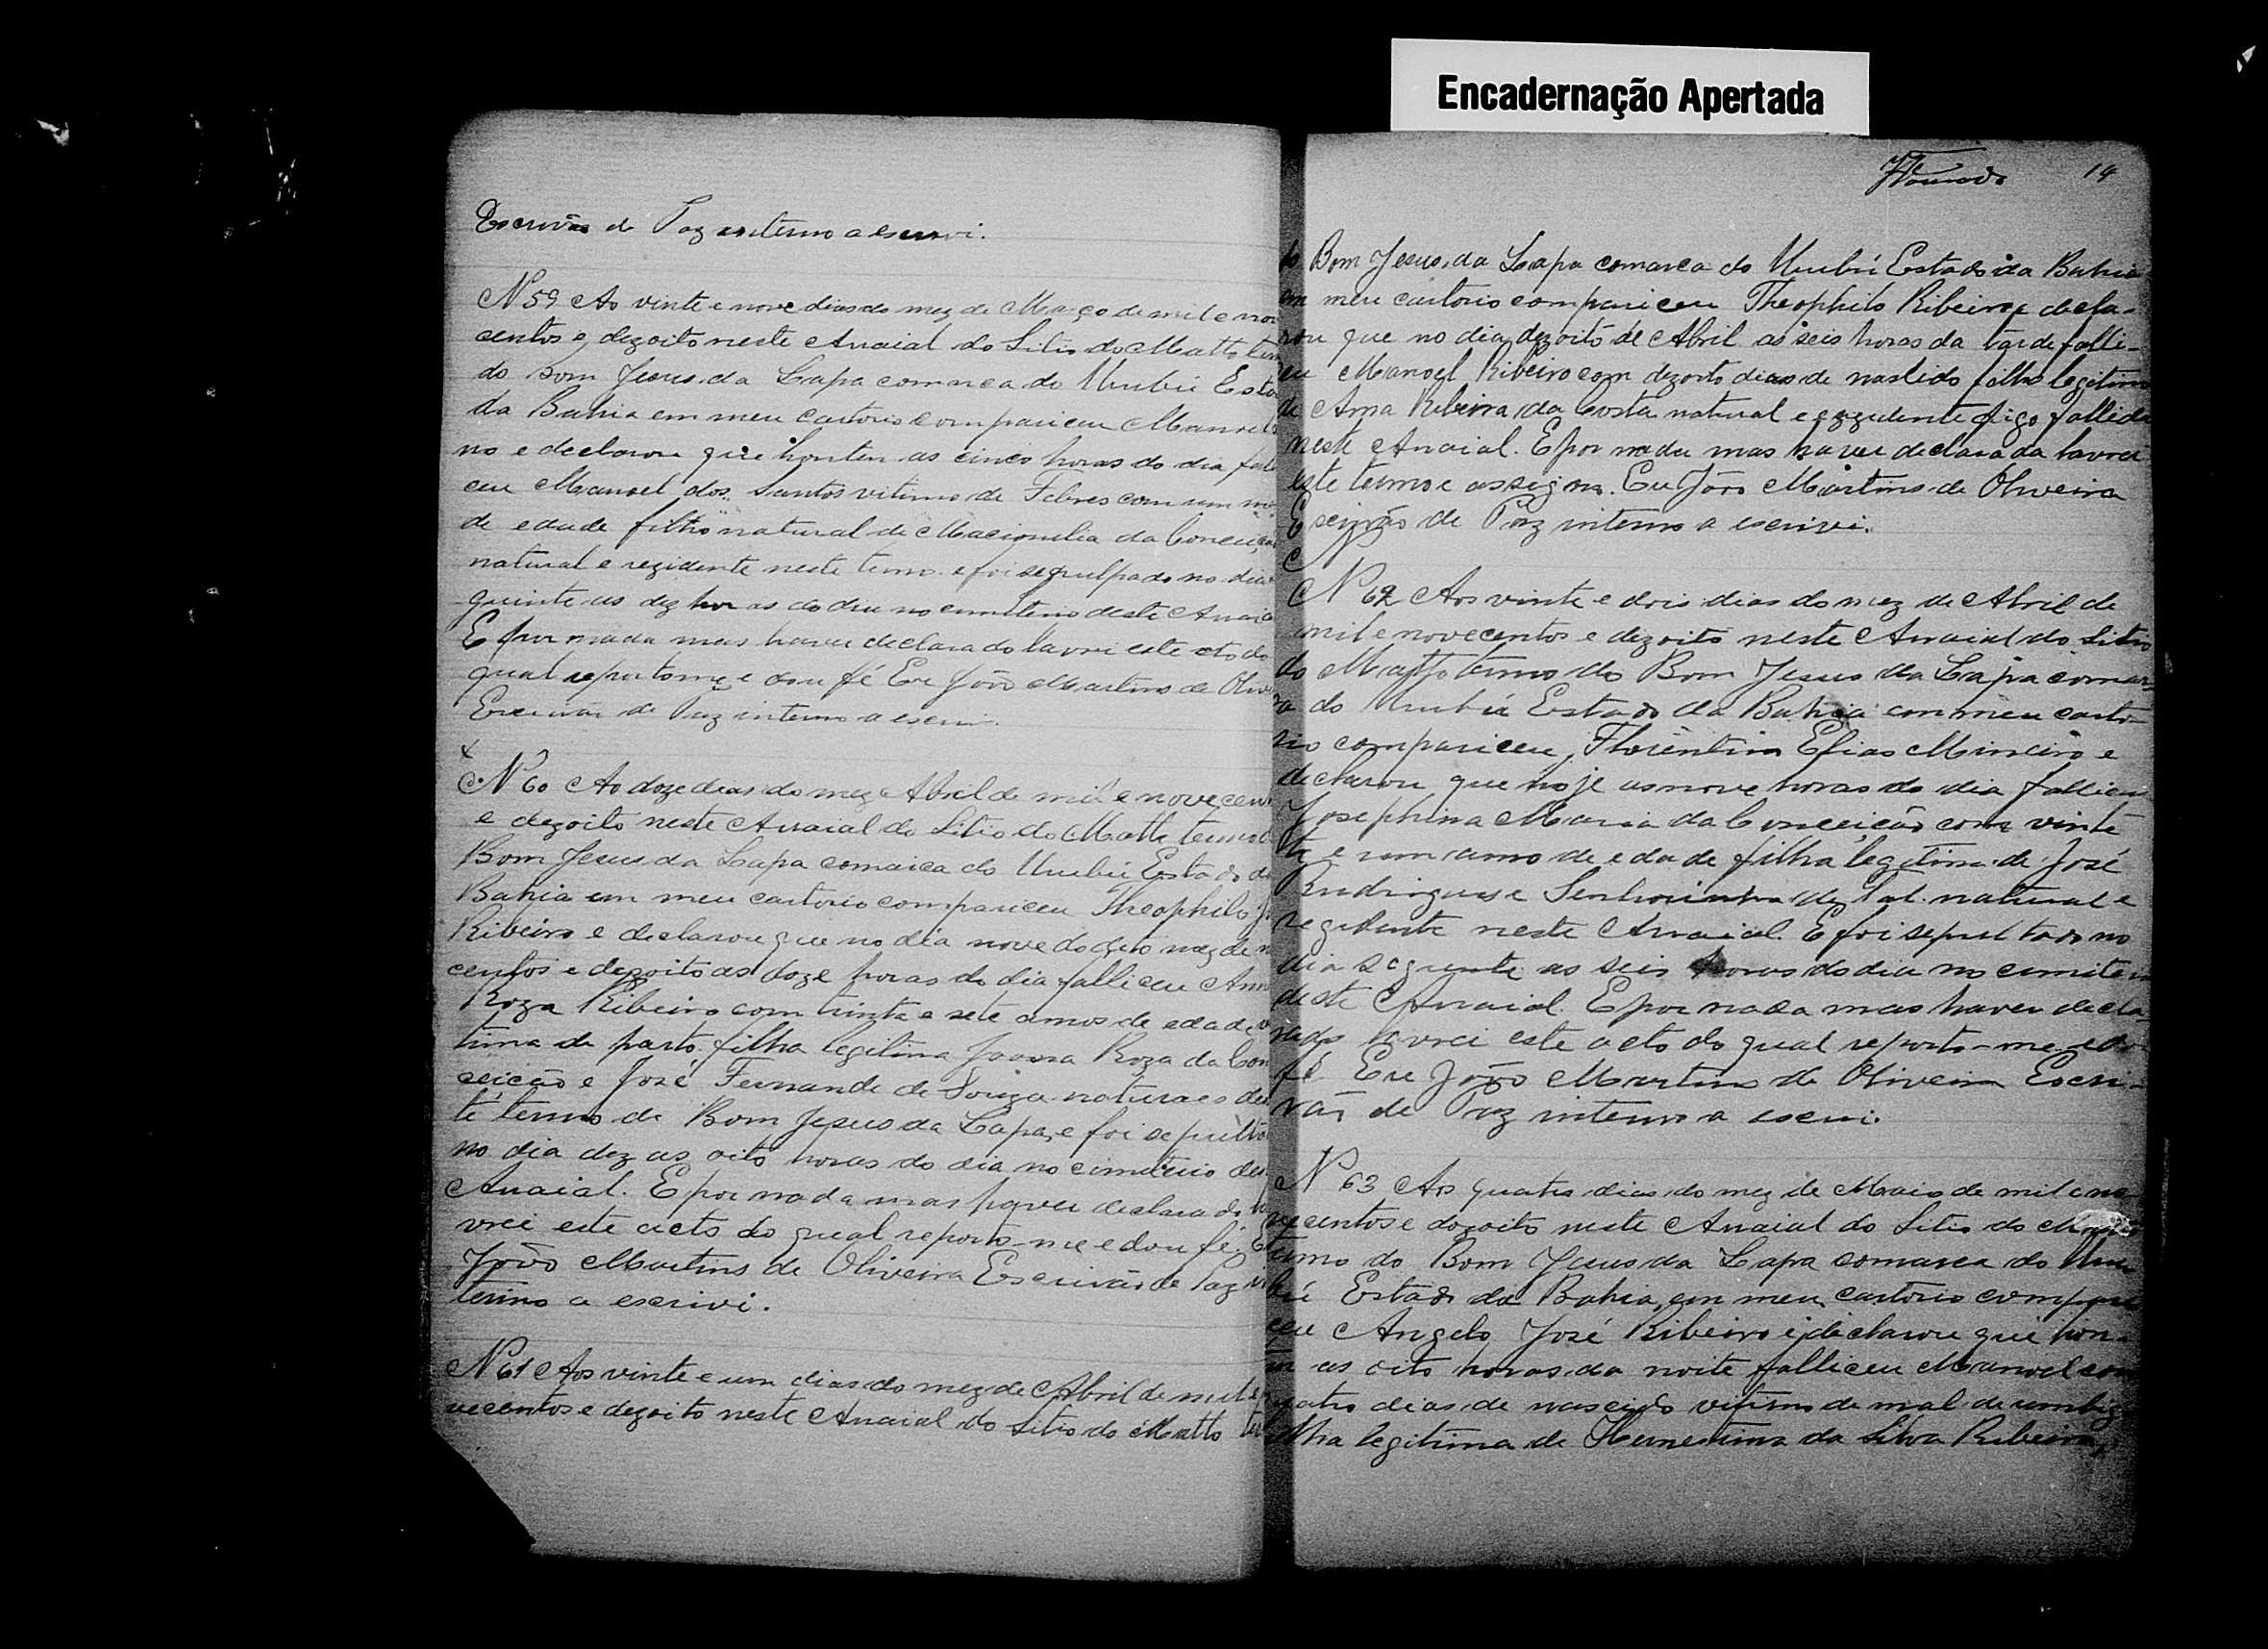 Encadernação Apertada
14
Escrivão de Paz interno a escrevi.
N 59 Ao vinte e nove dias do mez de Março de mil e nove
centos e dezoito neste Arraial do Sitio do Matto
do Bom Jesus da Lapa comarca do Urubú Esta
da Bahia em meu cartorio compariceu Manoel
no e declarou que honten as cinco horas do dia fali
ceu Manoel dos Santos vitimo de Febres com um
de edade filho natural de da Conceição
natural e rezidente neste termo e foi sepulpado no dia
guinte as dez horas do dia no cimiterio deste Arraia
E por nada mas haver declarado lavrei este ato do
qual reportome e dou fé Eu João Martins de Olivei
Escrivão de Paz interno a escrivi.
x
N 60 Ao doze dias do mez Abril de mil e nove cen
e dezoito neste Arraial do Sitio do Matto termo
Bom Jesus da Lapa comarca do Urubú Estado da
Bahia em meu cartorio compariceu Theophilo
Ribeiro e declarou que no dia nove do dito mez de
centos e dezoito as doze horas do dia falliceu Anna
Roza Ribeiro com trinta e sete annos de edade vi
tima de parto filha legitima Joanna Roza da Con
ceição e José Fernande de Souza naturaes des
te termo de Bom Jesus da Lapa, e foi sepulto
no dia dez as oito horas do dia no cimiterio des
Arraial. E por nada mas haver declarado la
vrei este acto do qual reporto-me e dou fé. Eu
João Martins de Oliveira Escrivão de Paz in
terino a escrivi.
N 61 Aos vinte e um dias do mez de Abril de mil e
vecentos e dezoito neste Arraial do Sitio do Matto ter
do Bom Jesus da Lapa comarca do Urubú Estado da Bahia
em meu cartorio compariceu Theophilo Ribeiro e decla-
rou que no dia dezoito de Abril as seis horas da tarde falli-
ceu Manoel Ribeiro com dezoito dias de naslido filho legitimo
de Anna Ribeira da Costa natural e rezidente digo fallido
neste Arraial. E por nada mas haver declarada lavrei
este termo e assigno. Eu João Martins de Oliveira
Escrivão de Paz interno a escrivi.
N 62 Aos vinte e dois dias do mez de Abril de
mil e novecentos e dezoito neste Arraial do Sitio
do Matto termo do Bom Jesus da Lapa comar
ca do Urubú Estado da Bahia em meu carto-
rio compariceu Florentino Elias Mineiro e
declarou que hoje as nove horas do dia falliceu
Josephina Maria da Conceição com vinte
te e um anno de edade filha legitima de José
Rudrigues e Senhorinha de Tal natural e
rezidente neste Arraial. E foi sepultado no
dia seguinte as seis horas do dia no cimiterio
deste Arraial. E por nada mas haver decla-
rado lavrei este acto do qual reporto-me e dou
fé Eu João Martins de Oliveira Escri-
vão de Paz interno a escrivi.
N 63 Aos quatro dias do mez de Maio de mil e no
vecentos e dozoito neste Arraial do Sitio do Matto
termo do Bom Jesus da Lapa comarca do Uru
bú Estado da Bahia, em meu cartorio compari
ceu Angelo José Ribeiro e declarou que hon-
tem as oito horas da noite falliceu Manoel com
quatro dias de nascido vitimo de mal de umbigo
filha legitima de Hernestina da Silva Ribeiro,